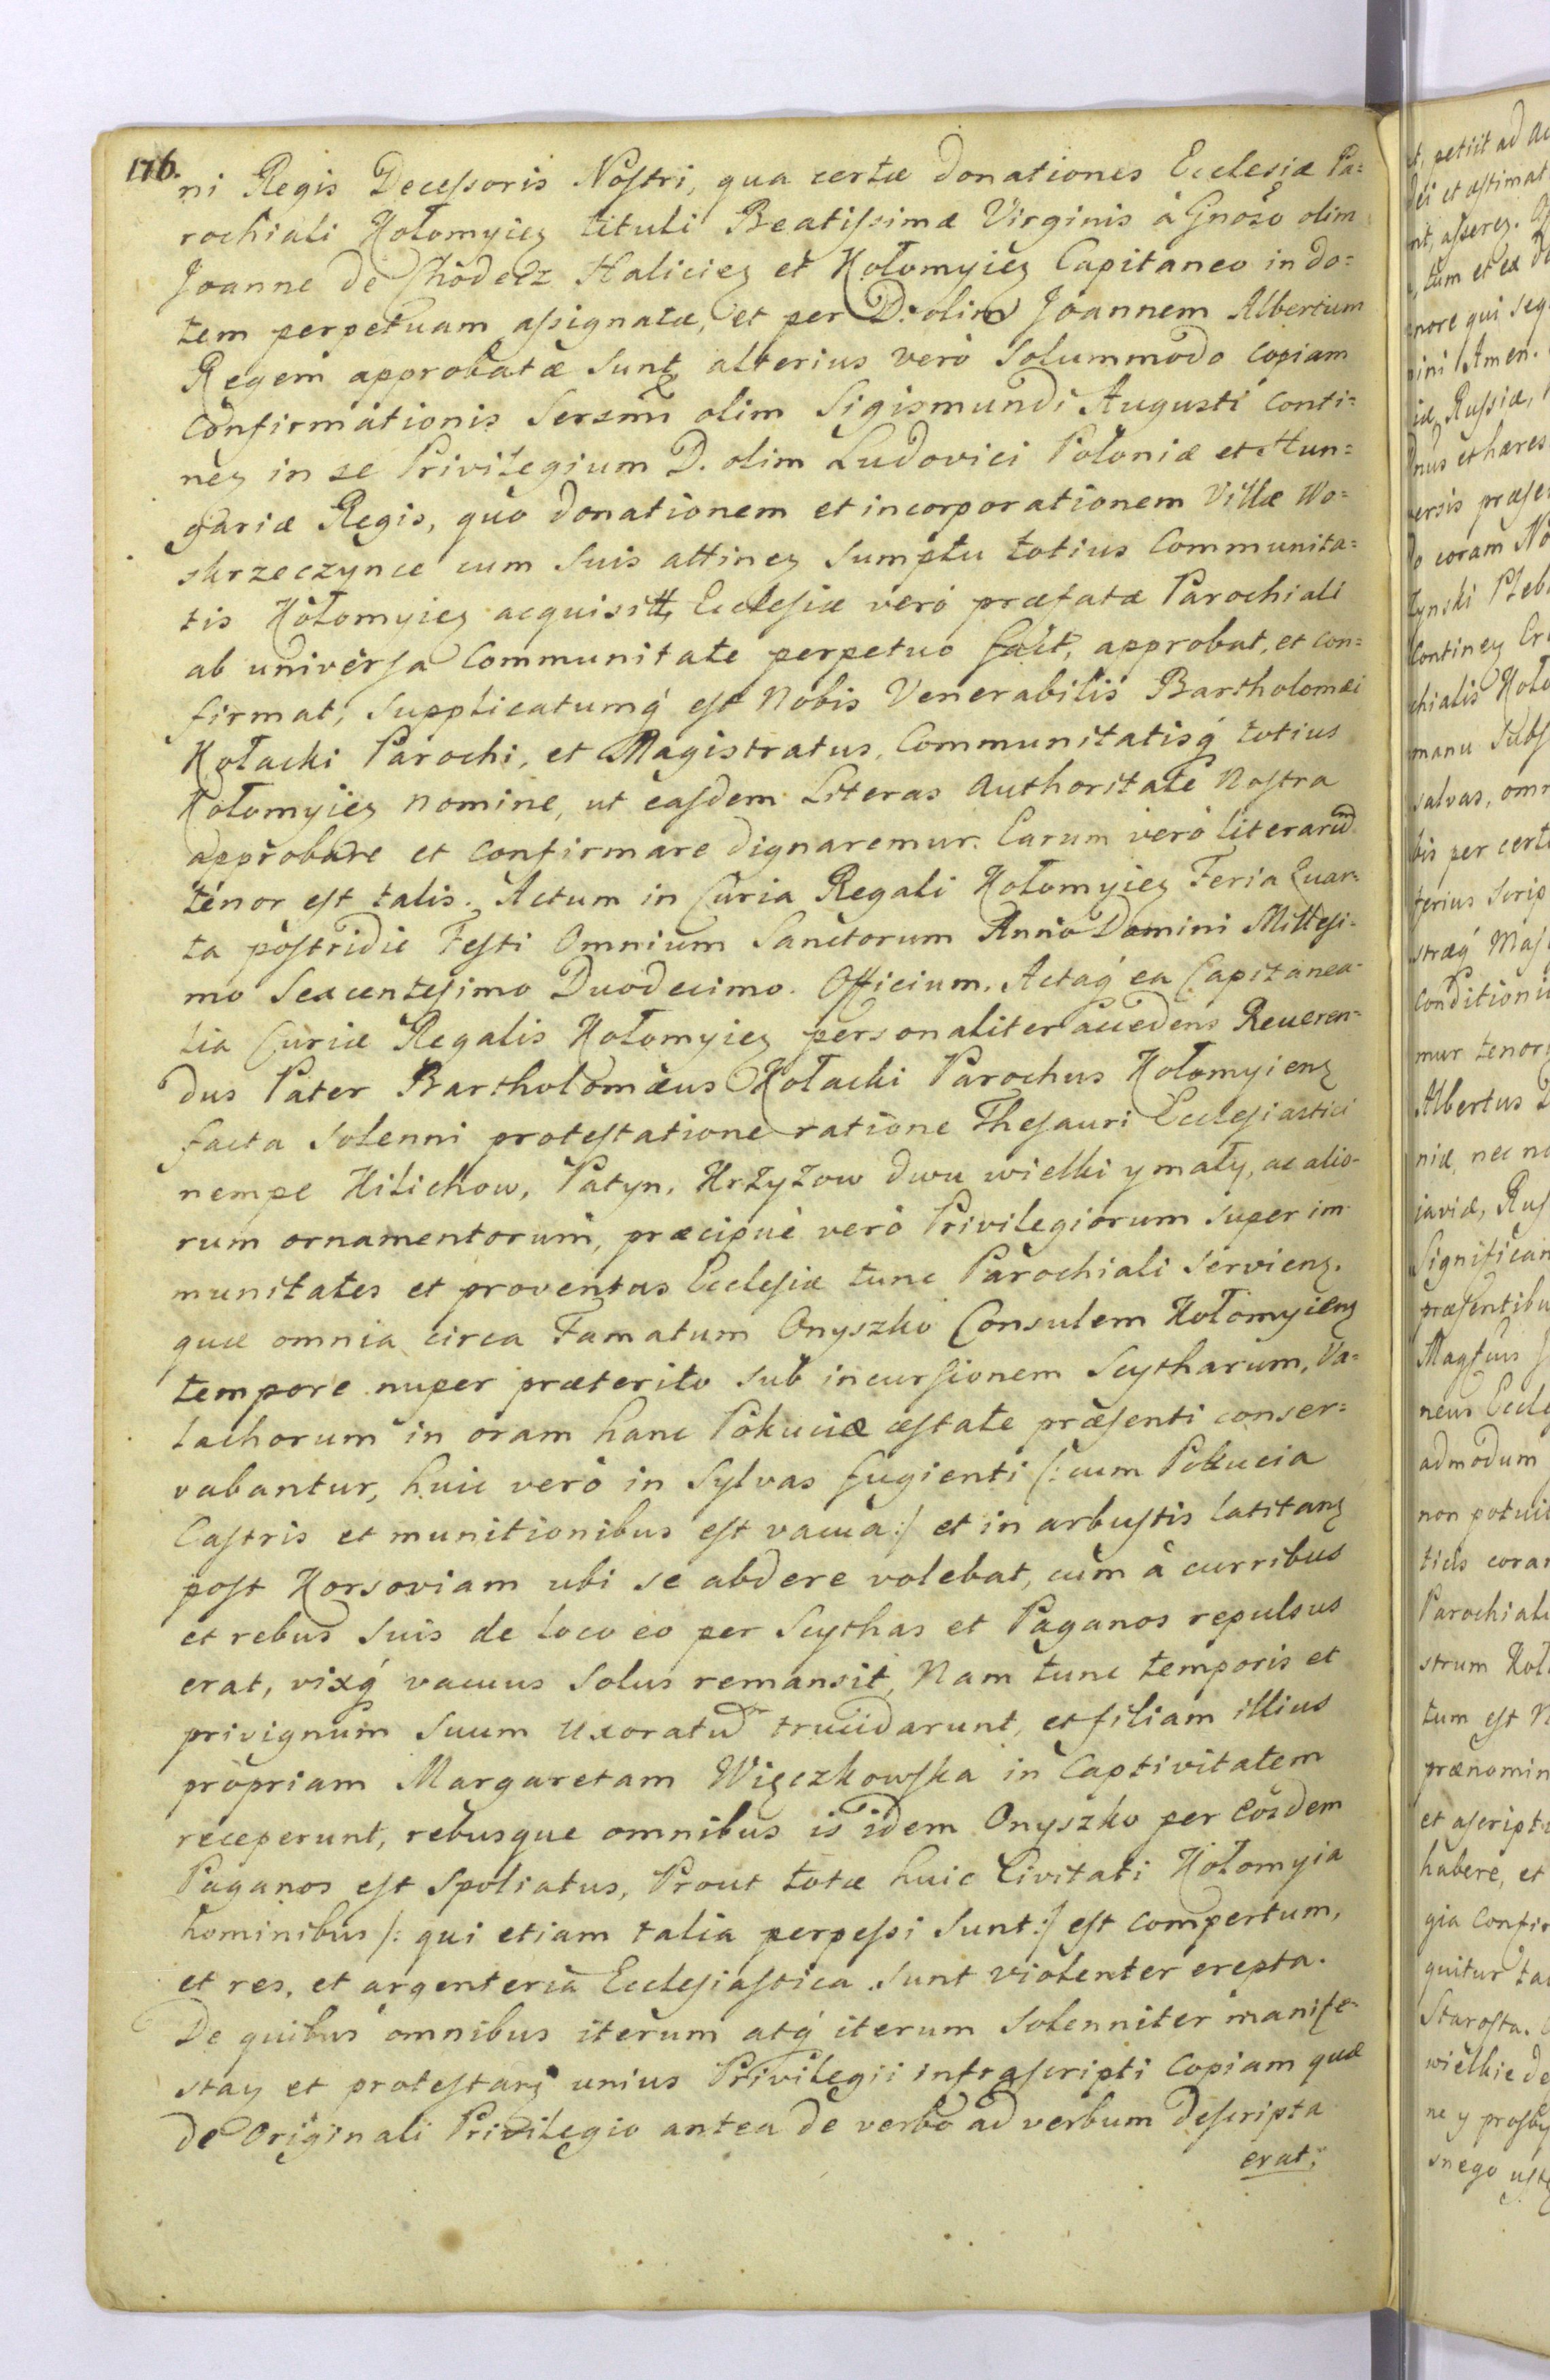 176.
ni Regis Decessoris Nostri, qua certæ donationes Ecclesiæ Pa=
rochiali Kołomyieg tituli Beatissimæ Virginis à Gnoso olim
Joanne de Chodecz Halicieg et Kołomyieg Capitaneo in do=
tem perpetuam assignatæ, et per D: olim Joannem Albertum
Regem approbatæ sunt, alterius verò solummodo copiam
confirmationis Sersmi olim Sigismundi Augusti conti=
neg in se Privilegium D. olim Ludovici Poloniæ et Hun=
gariæ Regis, quo donationem et incorporationem Villæ Wo=
skrzeczynce cum suis attineg sumptu totius Communita=
tis Kołomyieg acquisitt, Ecclesiæ verò præfatæ Parochiali
ab universa Communitate perpetuo fact, approbat, et con=
firmat, supplicatumq́ est Nobis Venerabilis Bartholomæi
Kołacki Parochi, et Magistratus, Communitatisq́ totius
Kołomyieg nomine, ut easdem Literas Authoritate Nostra
approbare et confirmare dignaremur. Earum verò literarum
tenor est talis. Actum in Curia Regali Kołomyieg Feria Quar=
ta postridie Festi Omnium Sanctorum Anno Domini Millesi=
mo Sexcentesimo Duodecimo. Officium, Actaq́ ea Capitanea=
lia Curiæ Regalis Kołomyieg personaliter accedens Reveren=
dus Pater Bartholomæus Kołacki Parochus Kołomyieng
facta solenni protestatione ratione Thesauri Ecclesiastici
nempe Kilichow, Patyn, Krzyzow dwu wielki y mały, ac alio=
rum ornamentorum, præcipuè verò Privilegiorum super im=
munitates et proventus Ecclesiæ tunc Parochiali servieng.
quæ omnia circa Famatum Onyszko Consulem Kołomyieng
tempore nuper præterito sub incursionem Scytharum, Va=
lachorum in oram hanc Pokuciæ æstate præsenti conser=
vabantur, huic verò in Sylvas fugienti /: cum Pokucia
Castris et munitionibus est vacua :/ et in arbustis latitang
post Korsoviam ubi se abdere volebat, cùm à curribus
et rebus suis de loco eo per Scythas et Paganos repulsus
erat, vixq́ vacuus solus remansit, Nam tunc temporis et
privignum suum uxoratum trucidarunt, et filiam illius
propriam Margaretam Więczkowska in Captivitatem
receperunt, rebusque omnibus is idem Onyszko per eosdem
Paganos est spoliatus, Prout totæ huic Civitati Kołomyia
hominibus /: qui etiam talia perpessi sunt :/ est compertum,
et res, et argenteria Ecclesiastica sunt violenter erepta.
De quibus omnibus iterum atq́ iterum solenniter manife=
stag et protestang unius Privilegii infrascripti Copiam quæ
de Originali Privilegio antea de verbo ad verbum descripta
erat,